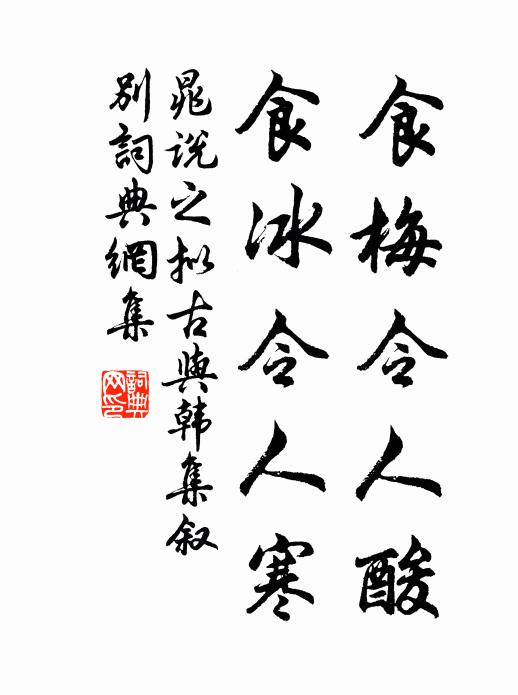 食梅令人酸
食冰令人寒
晁说之拟古與韩集叙
别詞典網集
詞典网印